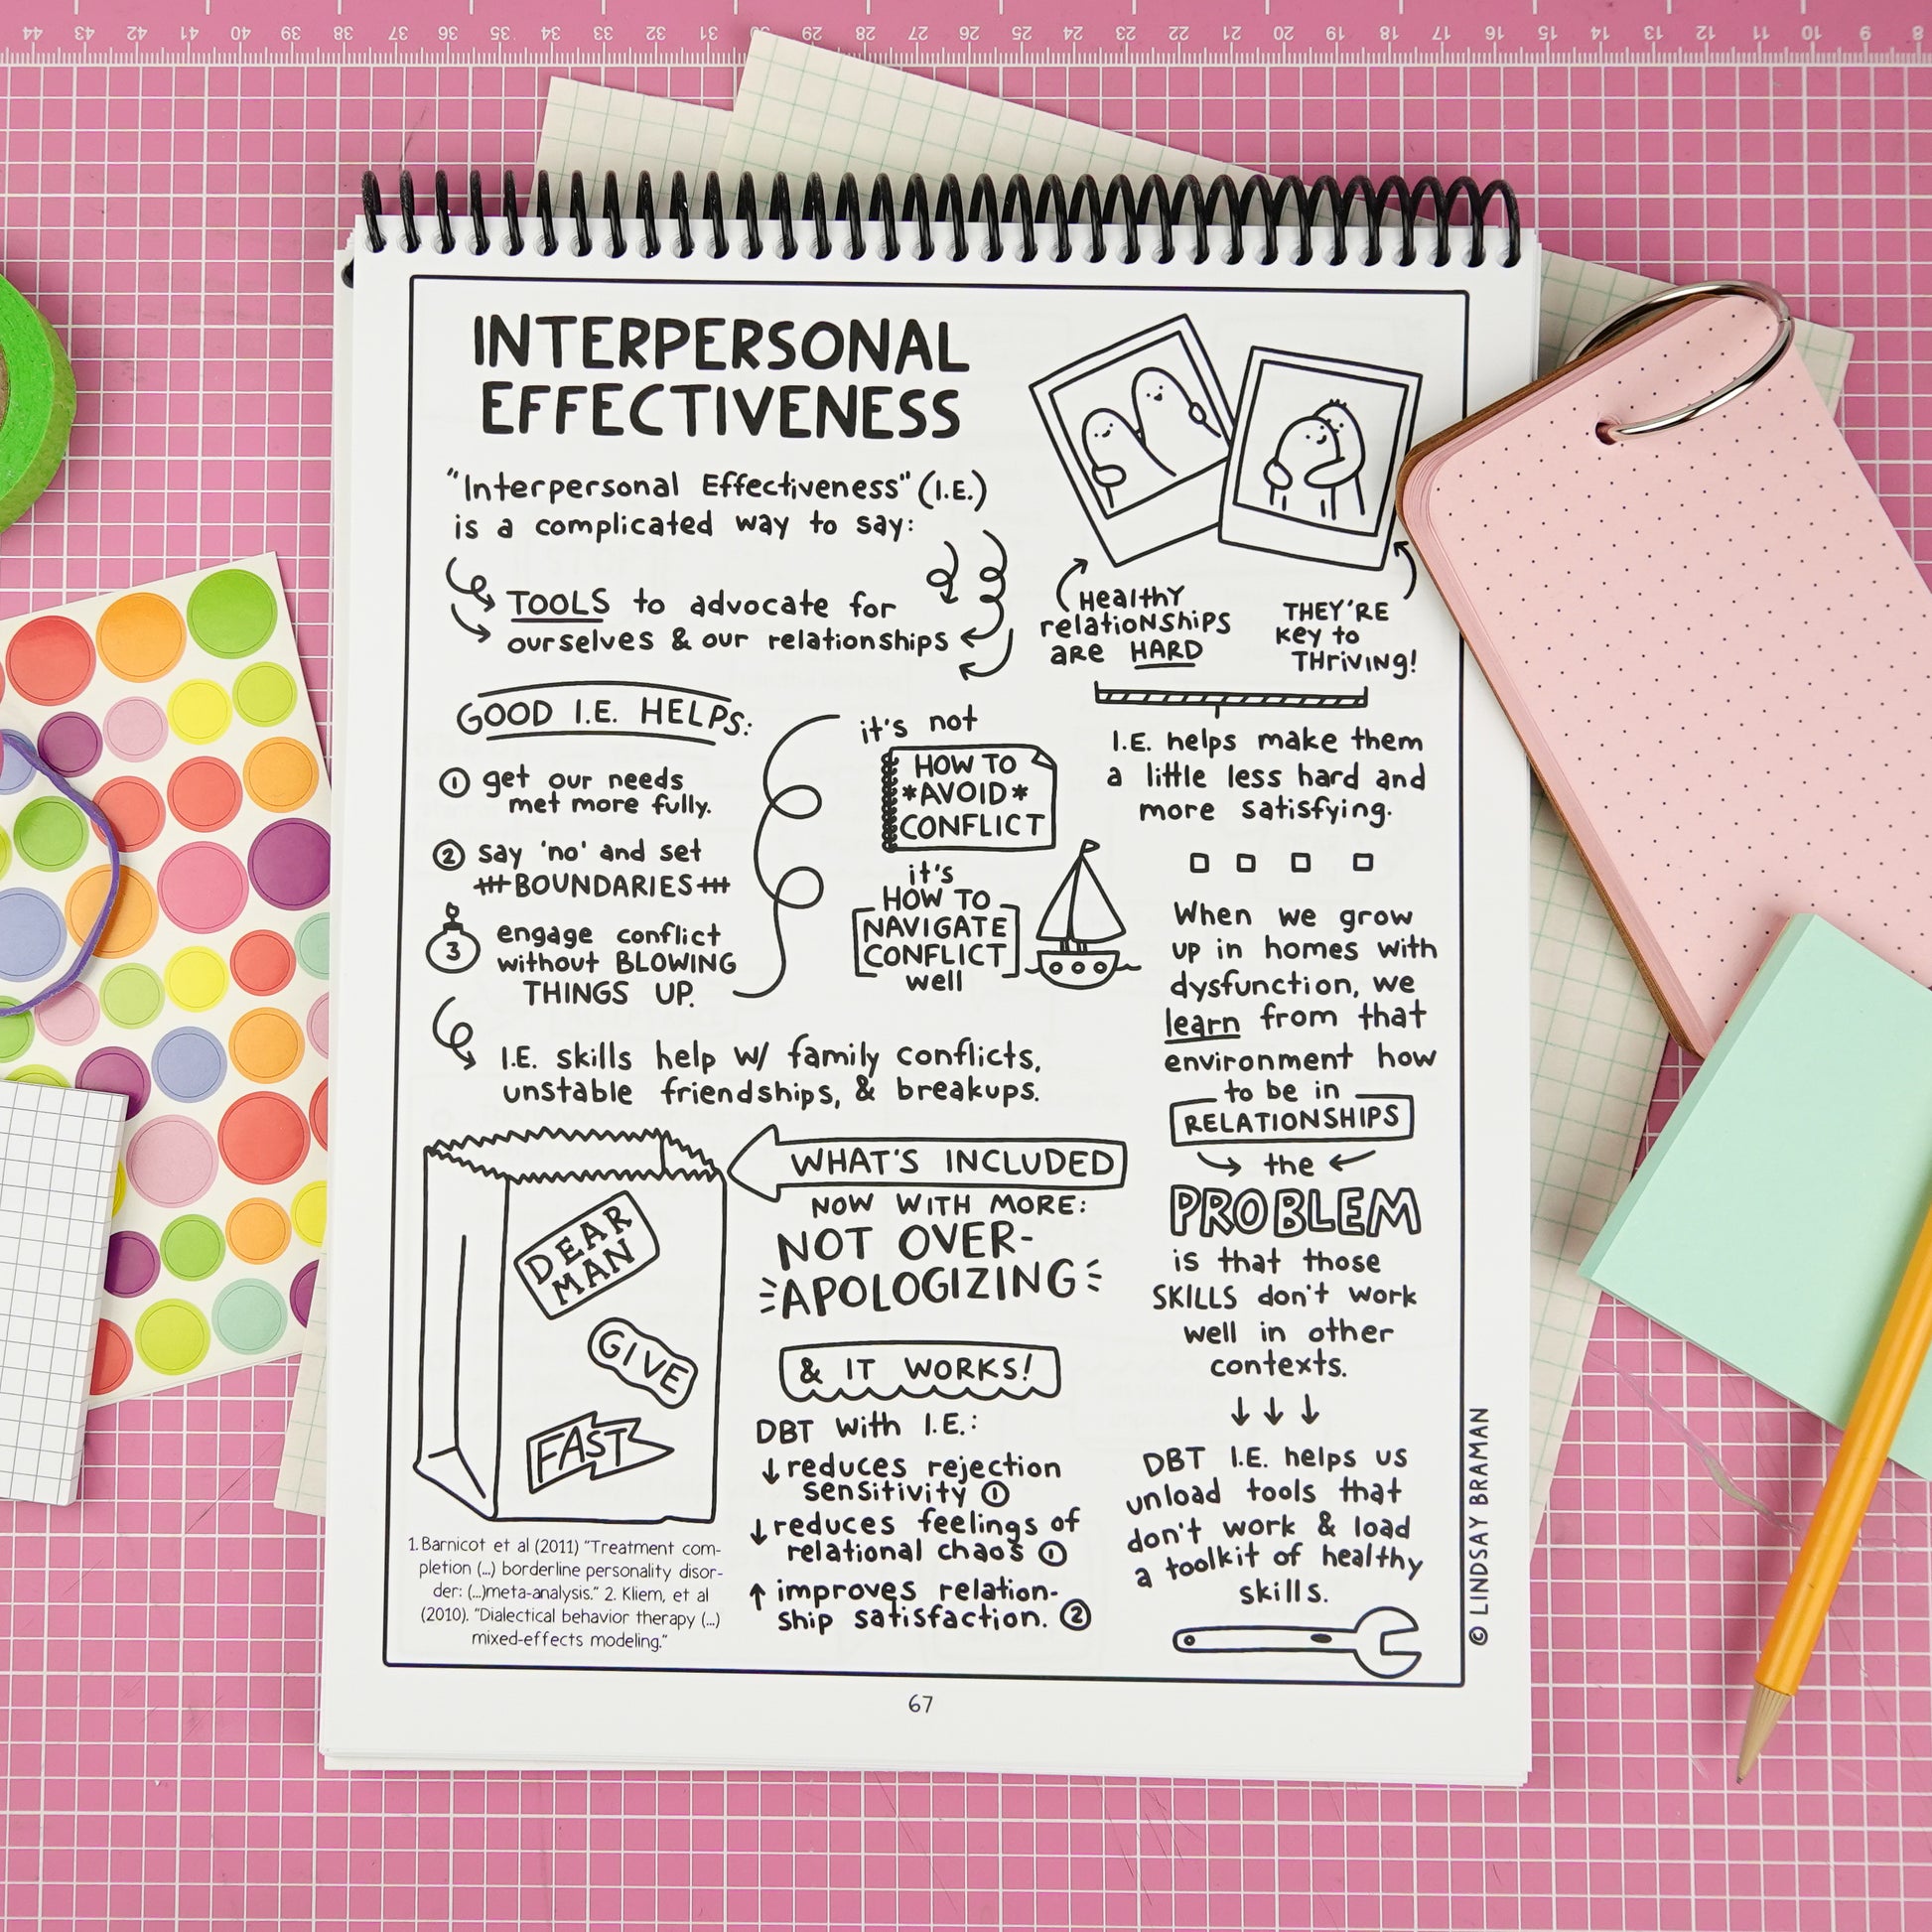 44 43 42 41 40 39 38 37 36 35 34 33 32 31 30 29 28 27 26 25 24 23 22 21 20 19 18 17 16 15 14 13 12 11 10 9 8
INTERPERSONAL
EFFECTIVENESS
"Interpersonal Effectiveness" (I.E.)
is a complicated way to say:
TOOLS to advocate for
ourselves & our relationships
Healthy
relationships
are HARD
THEY'RE
key to
THriving!
GOOD I.E. HELPS:
1 get our needs
met more fully.
2 say 'no' and set
BOUNDARIES
3 engage conflict
without BLOWING
THINGS UP.
it's not
HOW TO
*AVOID*
CONFLICT
it's
HOW TO
NAVIGATE
CONFLICT
well
I.E. skills help w/ family conflicts,
unstable friendships, & breakups.
I.E. helps make them
a little less hard and
more satisfying.
When we grow
up in homes with
dysfunction, we
learn from that
environment how
to be in
RELATIONSHIPS
the
PROBLEM
is that those
SKILLS don't work
well in other
contexts.
DBT I.E. helps us
unload tools that
don't work & load
a toolkit of healthy
skills.
DEAR
MAN
GIVE
FAST
WHAT'S INCLUDED
NOW WITH MORE:
NOT OVER-
APOLOGIZING
& IT WORKS!
DBT with I.E.:
↓ reduces rejection
sensitivity ①
↓ reduces feelings of
relational chaos ①
↑ improves relation-
ship satisfaction. ②
1. Barnicot et al (2011) "Treatment com-
pletion (...) borderline personality disor-
der: (...)meta-analysis." 2. Kliem, et al
(2010). "Dialectical behavior therapy (...)
mixed-effects modeling."
© LINDSAY BRAMAN
67